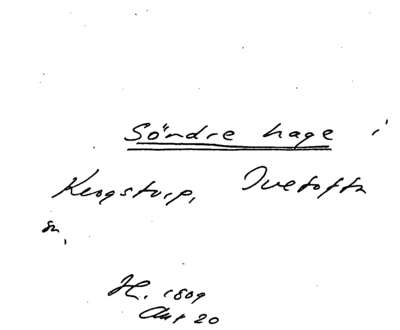 Söndre hage i
Krogstorp, Ivetofta
sn.
H. 1809
Akt 20